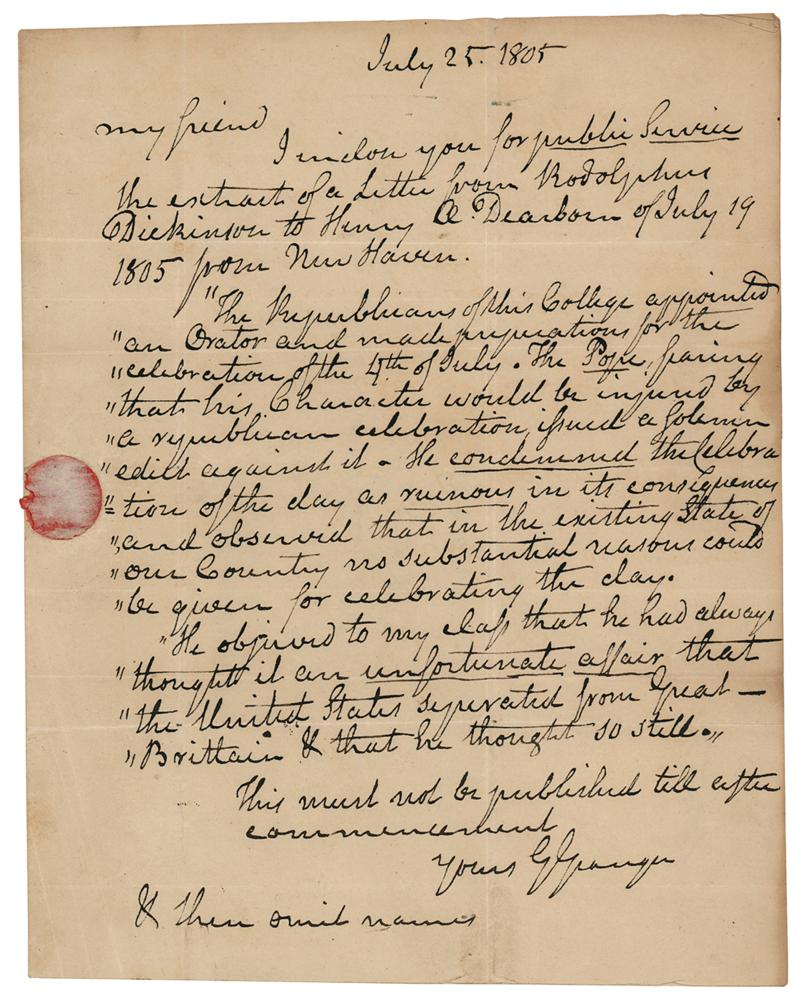 July 25. 1805
my friend
I inclose you for public Service
the extract of a Letter from Rodolphus
Dickinson to Henry A. Dearborn of July 19
1805 from New Haven.
"The Republicans of this College appointed
"an Orator and made preparations for the
"celebration of the 4th of July. The Pope, fearing
"that his Character would be injured by
"a republican celebration, issued a solemn
"edict against it - He condemned the Celebra
"tion of the day as ruinous in its consequences
"and observed that in the existing State of
"our Country no substantial reasons could
"be given for celebrating the day.
"He observed to my class that he had always
"thought it an unfortunate affair that
"the United States seperated from Great —
"Brittain & that he thought so still."
This must not be published till after
commencement
yours G Granger
& then omit names